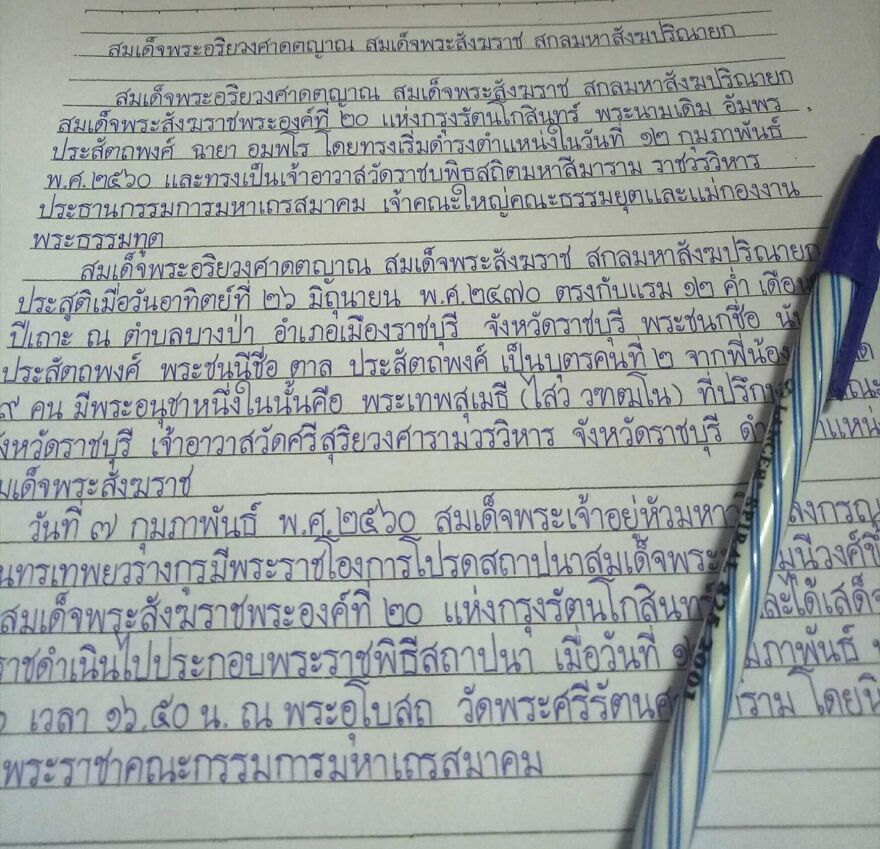 สมเด็จพระอริยวงศาคตญาณ สมเด็จพระสังฆราช สกลมหาสังฆปริณายก
สมเด็จพระอริยวงศาคตญาณ สมเด็จพระสังฆราช สกลมหาสังฆปริณายก
สมเด็จพระสังฆราชพระองค์ที่ ๒๐ แห่งกรุงรัตนโกสินทร์ พระนามเดิม อัมพร
ประสัตถพงศ์ ฉายา อมพโร โดยทรงเริ่มดำรงตำแหน่งในวันที่ ๑๒ กุมภาพันธ์
พ.ศ.๒๕๖๐ และทรงเป็นเจ้าอาวาสวัดราชบพิธสถิตมหาสีมาราม ราชวรวิหาร
ประธานกรรมการมหาเถรสมาคม เจ้าคณะใหญ่คณะธรรมยุตและแม่กองงาน
พระธรรมทูต
สมเด็จพระอริยวงศาคตญาณ สมเด็จพระสังฆราช สกลมหาสังฆปริณายก
ประสูติเมื่อวันอาทิตย์ที่ ๒๖ มิถุนายน พ.ศ.๒๔๗๐ ตรงกับแรม ๑๒ ค่ำ เดือน
ปีเถาะ ณ ตำบลบางป่า อำเภอเมืองราชบุรี จังหวัดราชบุรี พระชนกชื่อ นับ
ประสัตถพงศ์ พระชนนีชื่อ ตาล ประสัตถพงศ์ เป็นบุตรคนที่ ๒ จากพี่น้อง
๙ คน มีพระอนุชาหนึ่งในนั้นคือ พระเทพสุเมธี (ไสว วฑฒโน) ที่ปรึก
ังหวัดราชบุรี เจ้าอาวาสวัดศรีสุริยวงศารามวรวิหาร จังหวัดราชบุรี ดำ ำแหน่
มเด็จพระสังฆราช
วันที่ ๗ กุมภาพันธ์ พ.ศ.๒๕๖๐ สมเด็จพระเจ้าอยู่หัวมหาว ลงกรณ
นทรเทพยวรางกูรมีพระราชโองการโปรดสถาปนาสมเด็จพระ มุนีวงศ์ขึ้
สมเด็จพระสังฆราชพระองค์ที่ ๒๐ แห่งกรุงรัตนโกสินทร ละได้เสด็จ
ราชดำเนินไปประกอบพระราชพิธีสถาปนา เมื่อวันที่ ๑ มภาพันธ์
๐ เวลา ๑๖.๕๐ น. ณ พระอุโบสถ วัดพระศรีรัตนศ าราม โดยนิ
พระราชาคณะกรรมการมหาเถรสมาคม
LANCER SPIRAL 825 2001